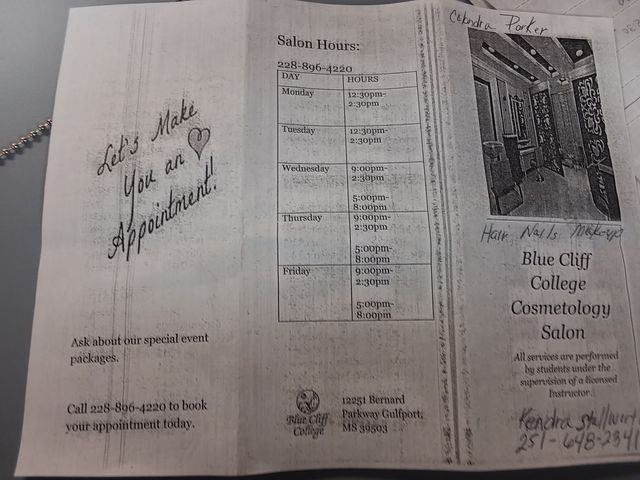 Let's Make
You an
Appointment!
Ask about our special event
packages.
Call 228-896-4220 to book
your appointment today.
Salon Hours:
228-896-4220
DAY HOURS
Monday 12:30pm-
2:30pm
Tuesday 12:30pm-
2:30pm
Wednesday 9:00pm-
2:30pm
5:00pm-
8:00pm
Thursday 9:00pm-
2:30pm
5:00pm-
8:00pm
Friday 9:00pm-
2:30pm
5:00pm-
8:00pm
Blue Cliff
College
12251 Bernard
Parkway Gulfport,
MS 39503
Parker
Hair Nails Make-up
Blue Cliff
College
Cosmetology
Salon
All services are performed
by students under the
supervision of a licensed
Instructor.
Kendra
251-648-2341